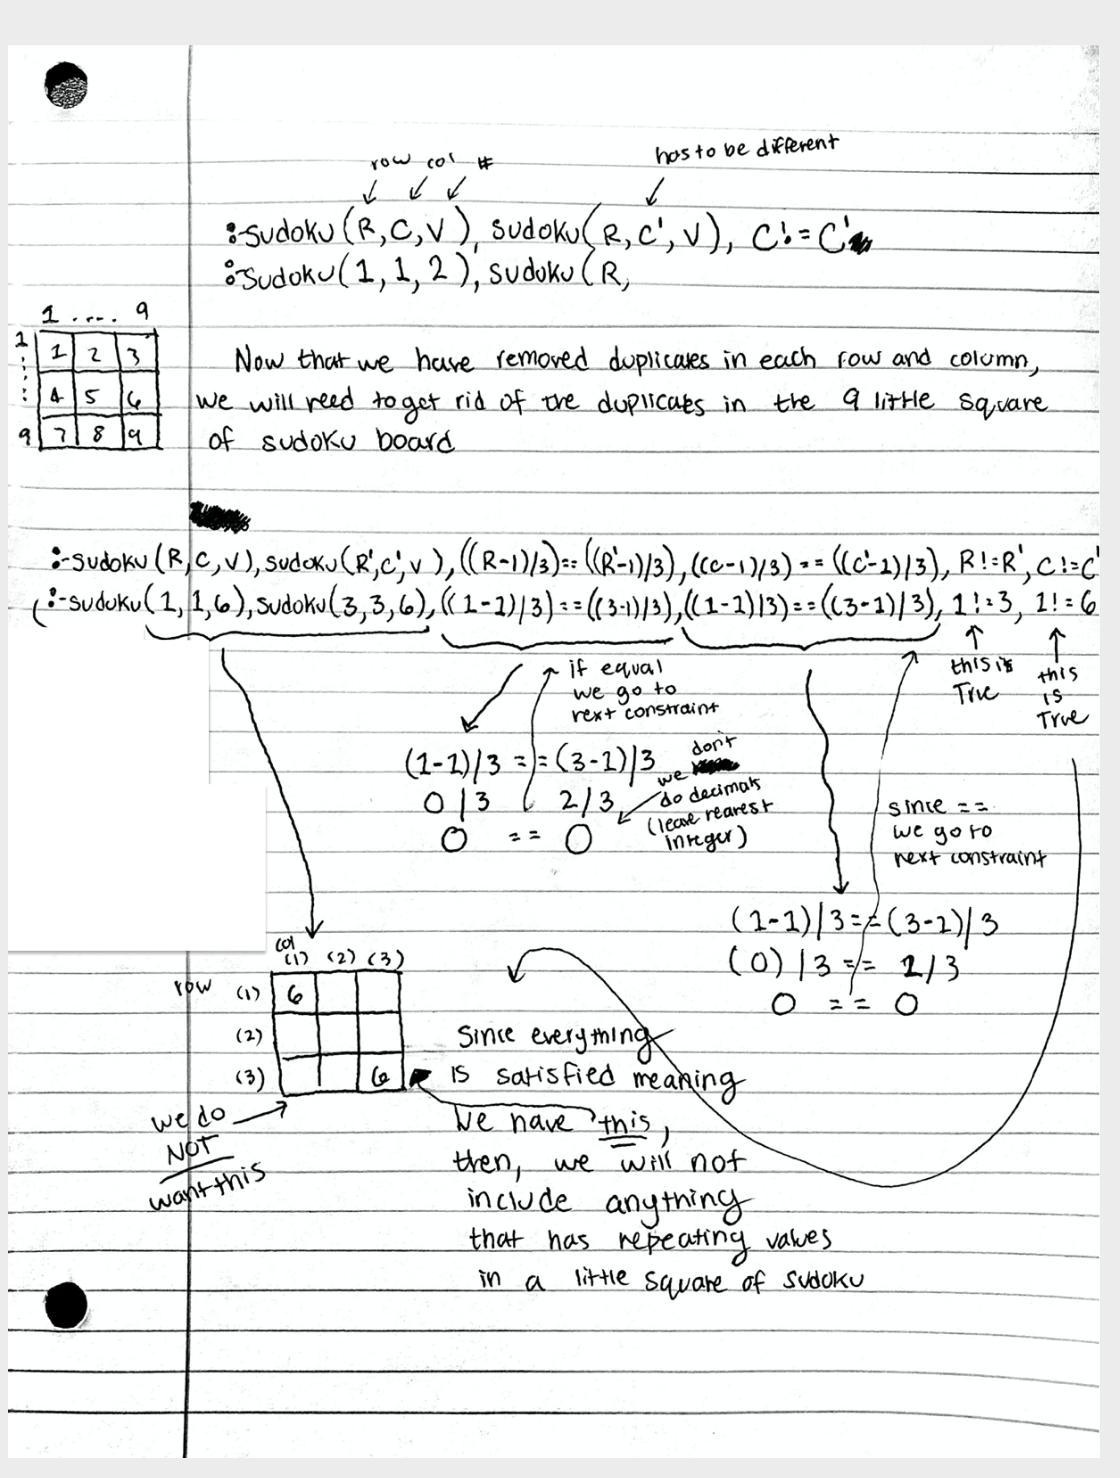 row col #
has to be different
:-sudoku(R,C,V), sudoku(R,C',V), C!=C'
:-sudoku(1,1,2), sudoku(R,
1 .... 9
1
1 2 3
4 5 6
9 7 8 9
Now that we have removed duplicates in each row and column,
we will need to get rid of the duplicates in the 9 little square
of sudoku board
:-sudoku(R,C,V), sudoku(R',C',V), ((R-1)/3)==((R'-1)/3), ((C-1)/3)==((C'-1)/3), R!=R', C!=C'
(:-sudoku(1,1,6), sudoku(3,3,6), ((1-1)/3)==((3-1)/3), ((1-1)/3)==((3-1)/3), 1!=3, 1!=6
if equal
we go to
next constraint
this is
True
this
is
True
(1-1)/3 == (3-1)/3
0/3 2/3
0 == 0
we don't
do decimals
(leave nearest
integer)
since ==
we go to
next constraint
(1-1)/3==(3-1)/3
(0)/3 == 2/3
0 == 0
col
(1) (2) (3)
row (1) 6
(2)
(3) 6
we do
NOT
want this
Since everything
is satisfied meaning
we have this,
then, we will not
include anything
that has repeating values
in a little square of sudoku